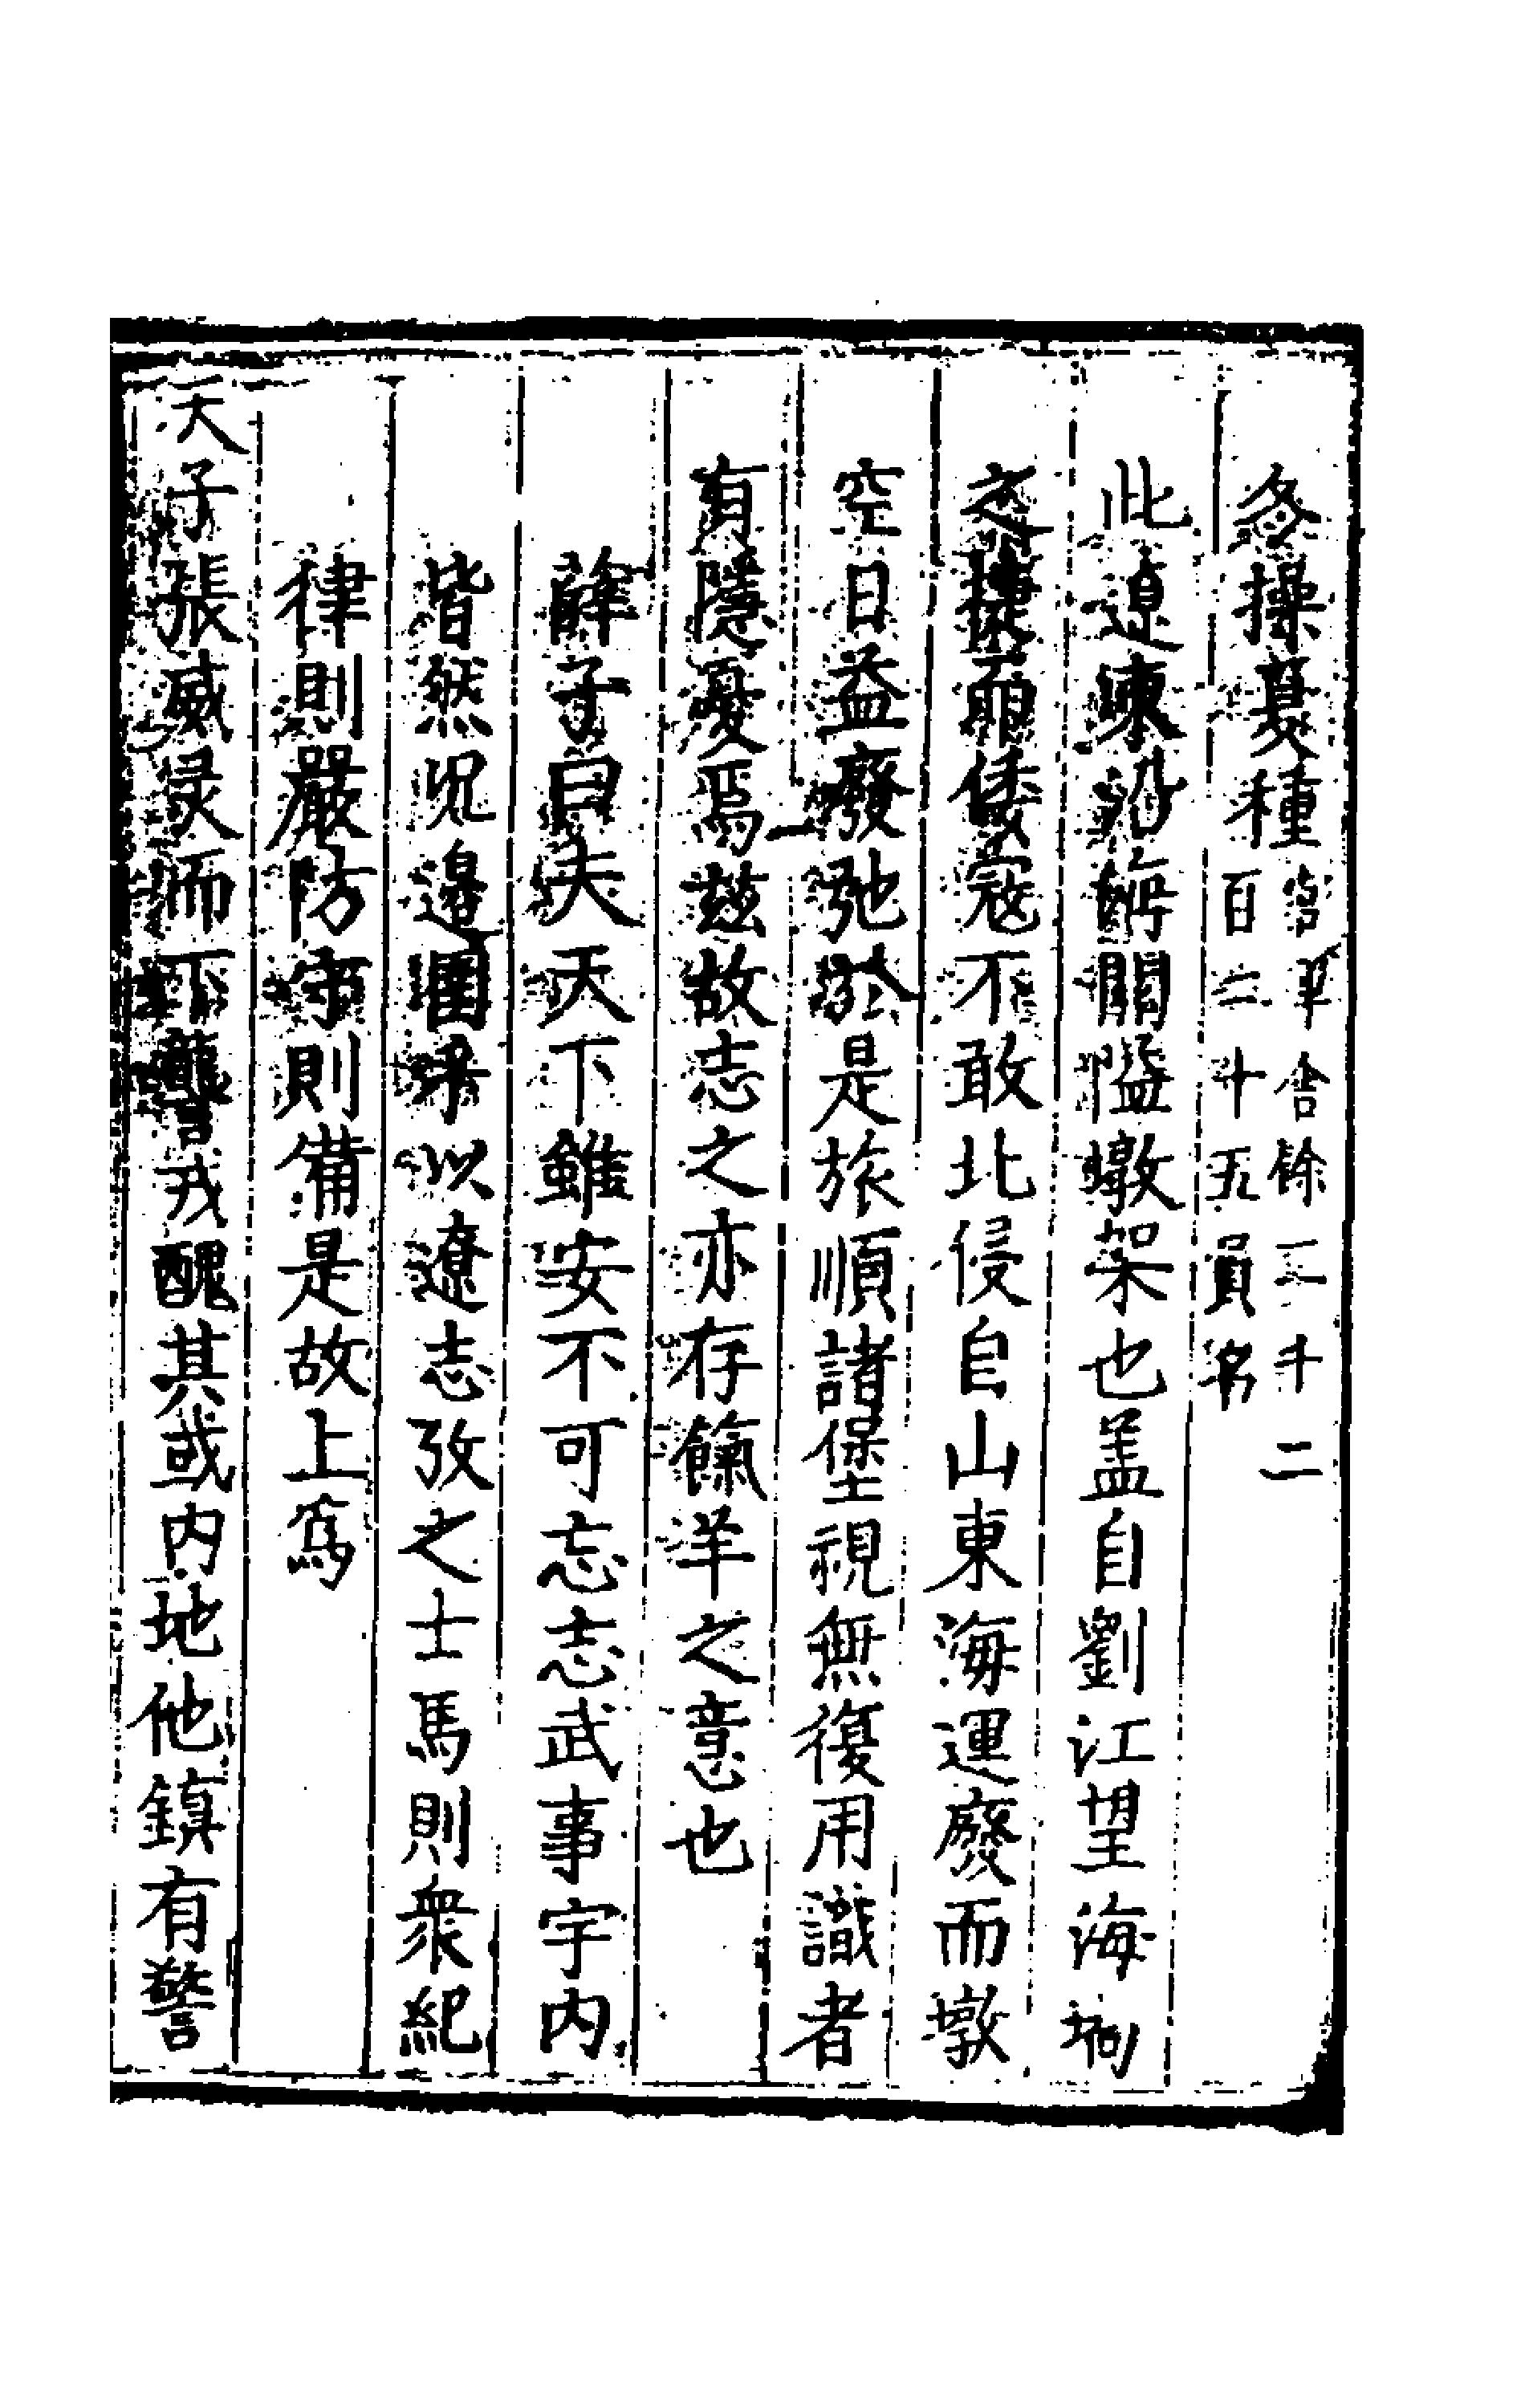 冬操夏種官軍舍餘二千二百二十五員名
此遼東沿海關隘墩架也盖自劉江望海堝
之捷而倭寇不敢北侵自山東海運廢而墩
空日益廢弛於是旅順諸堡視無復用識者
有隱憂焉兹故志之亦存餼羊之意也
薛子曰夫天下雖安不可忘志武事宇内
皆然况邉圉乎以遼志攷之士馬則衆紀
律則嚴防守則備是故上爲
天子張威灵而下讋戎醜其或内地他鎮有警